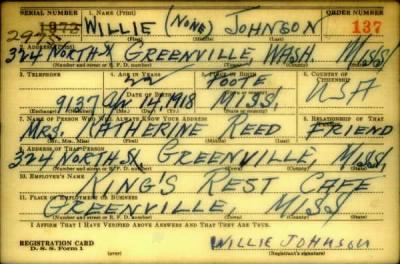 SERIAL NUMBER 1. NAME (Print) ORDER NUMBER
1973 WILLIE (NONE) JOHNSON 137
2. ADDRESS (Print)
324 NORTH ST GREENVILLE, WASH. MISS.
(Number and street or R. F. D. number) (Town) (County) (State)
3. TELEPHONE 4. AGE IN YEARS 5. PLACE OF BIRTH 6. COUNTRY OF CITIZENSHIP
22 FOOTE
DATE OF BIRTH
9137 Apr 14, 1918 MISS. USA
7. NAME OF PERSON WHO WILL ALWAYS KNOW YOUR ADDRESS 8. RELATIONSHIP OF THAT PERSON
MRS. KATHERINE REED FRIEND
(Mr., Mrs., Miss) (First) (Middle) (Last)
9. ADDRESS OF THAT PERSON
324 NORTH ST GREENVILLE, MISS
(Number and street or R. F. D. number) (Town) (County) (State)
10. EMPLOYER'S NAME
KING'S REST CAFE
11. PLACE OF EMPLOYMENT OR BUSINESS
GREENVILLE, MISS
(Number and street or R. F. D. number) (Town) (County) (State)
I AFFIRM THAT I HAVE VERIFIED ABOVE ANSWERS AND THAT THEY ARE TRUE.
REGISTRATION CARD WILLIE JOHNSON
D. S. S. Form 1 (over) (Registrant's signature)